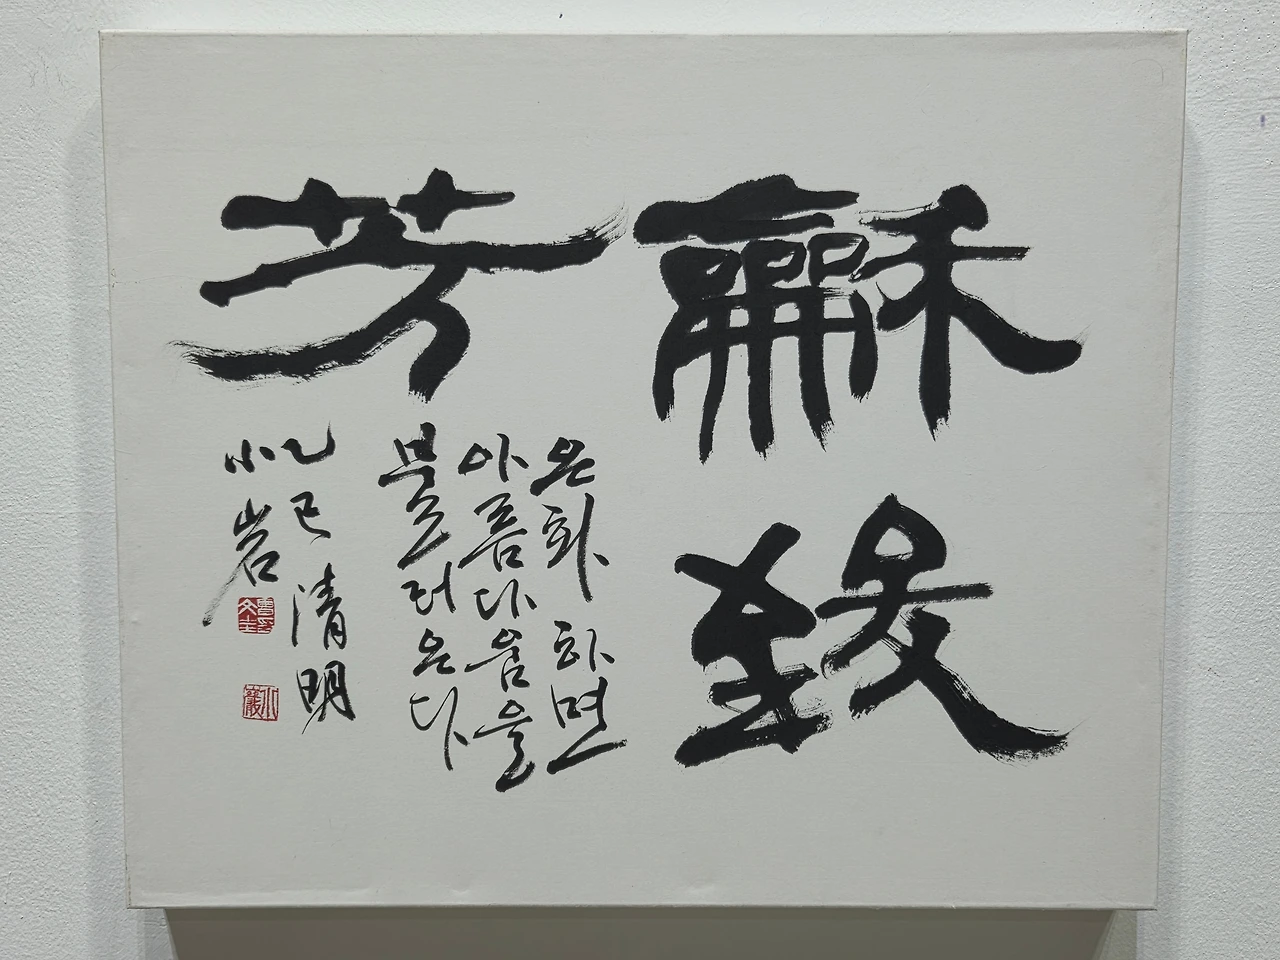 龢致
芳
온화하면
아름다움을
불러온다
乙巳清明
小岩
小巖